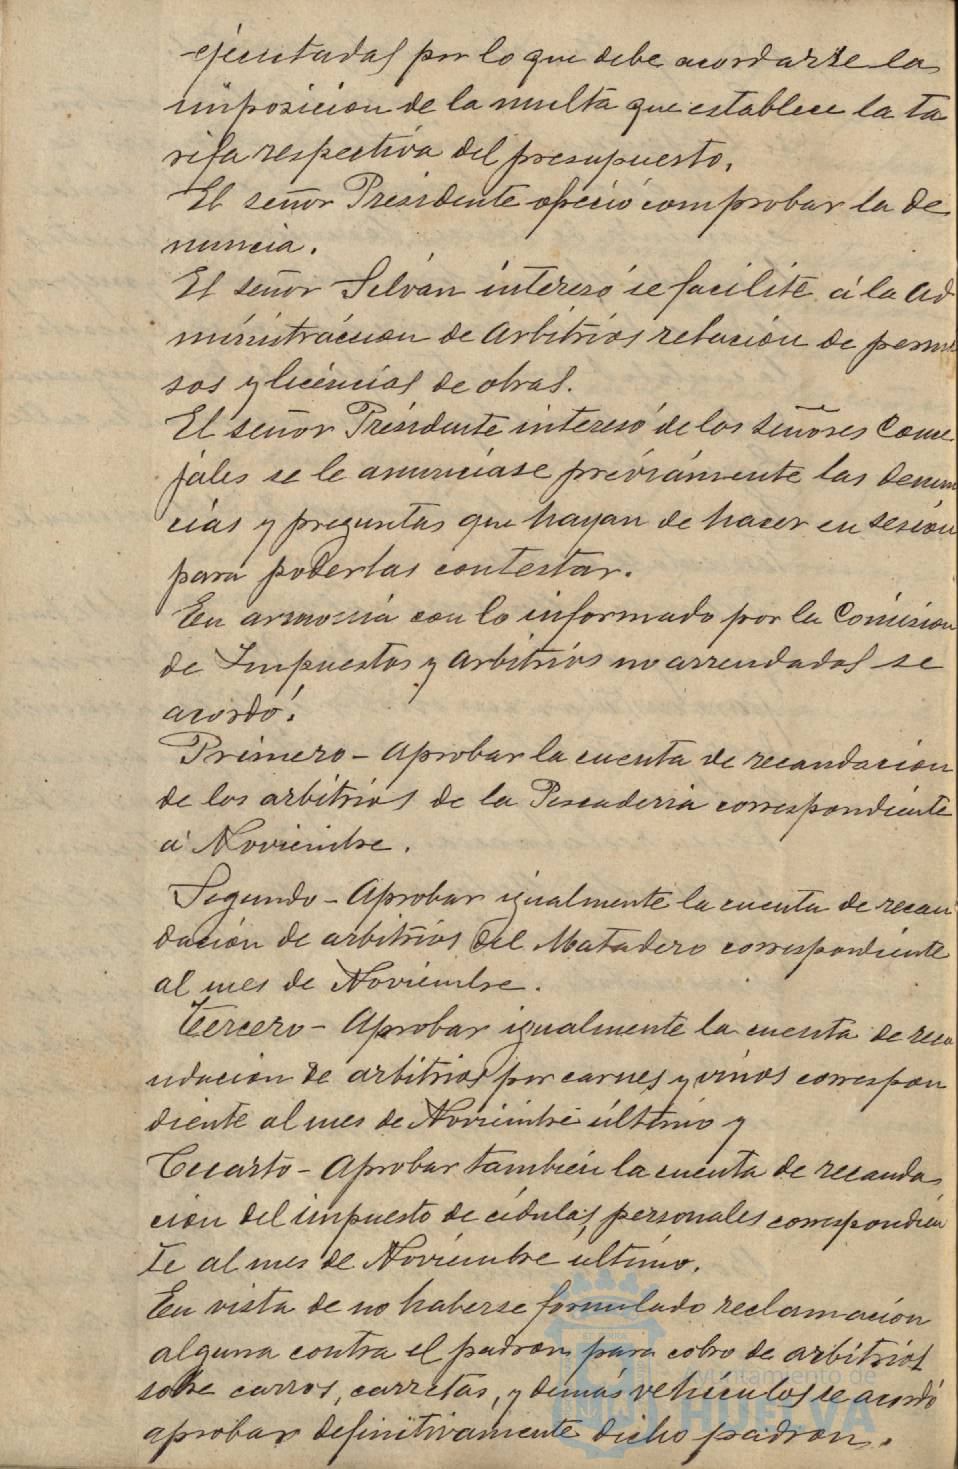 ejecutadas por lo que debe acordarse la
imposicion de la multa que establece la ta
rifa respectiva del presupuesto.
El señor Presidente ofreció comprobar la de
nuncia.
El señor Selván interesó se facilite á la Ad
ministracion de Arbitrios relación de permi
sos y licencias de obras.
El señor Presidente interesó de los señores Conce
jales se le anunciase préviamente las denun
cias y preguntas que hayan de hacer en sesión
para poderlas contestar.
En armonia con lo informado por la Comision
de Impuestos y Arbitrios no arrendados se
acordó:
Primero - Aprobar la cuenta de recaudacion
de los arbitrios de la Pescaderia correspondiente
á Noviembre.
Segundo - Aprobar igualmente la cuenta de recau
dación de arbitrios del Matadero correspondiente
al mes de Noviembre.
Tercero - Aprobar igualmente la cuenta de reca
udacion de arbitrios por carnes y vinos correspon
diente al mes de Noviembre último y
Cuarto - Aprobar tambien la cuenta de recauda
cion del impuesto de cédulas personales correspondien
te al mes de Noviembre último.
En vista de no haberse formulado reclamación
alguna contra el padron para cobro de arbitrios
sobre carros, carretas, y demás vehiculos se acordó
aprobar definitivamente dicho padron.
Ayuntamiento de
HUELVA